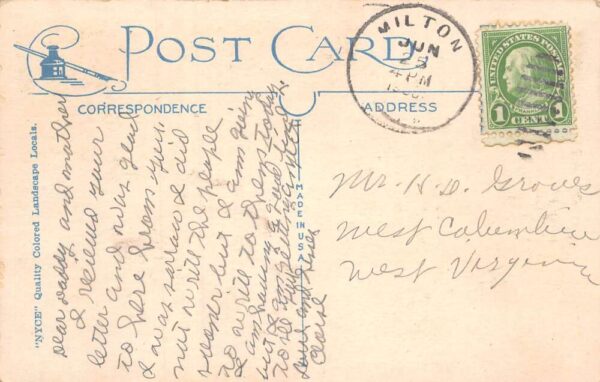 POST CARD
CORRESPONDENCE
ADDRESS
"NYCE" Quality Colored Landscape Locals.
MADE IN U.S.A.
MILTON
JUN
25
4 PM
UNITED STATES POSTAGE
1 CENT 1
Dear daddy and mother
I recieved your
letter and was glad
to here from you.
I was sorlow I did
not write the people
sooner but I am going
to write to them today
I am having a good time
Love and kisses
Mr. H. D. Groves
West Columbia
West Virginia